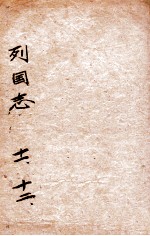 列国志
十一、十二、